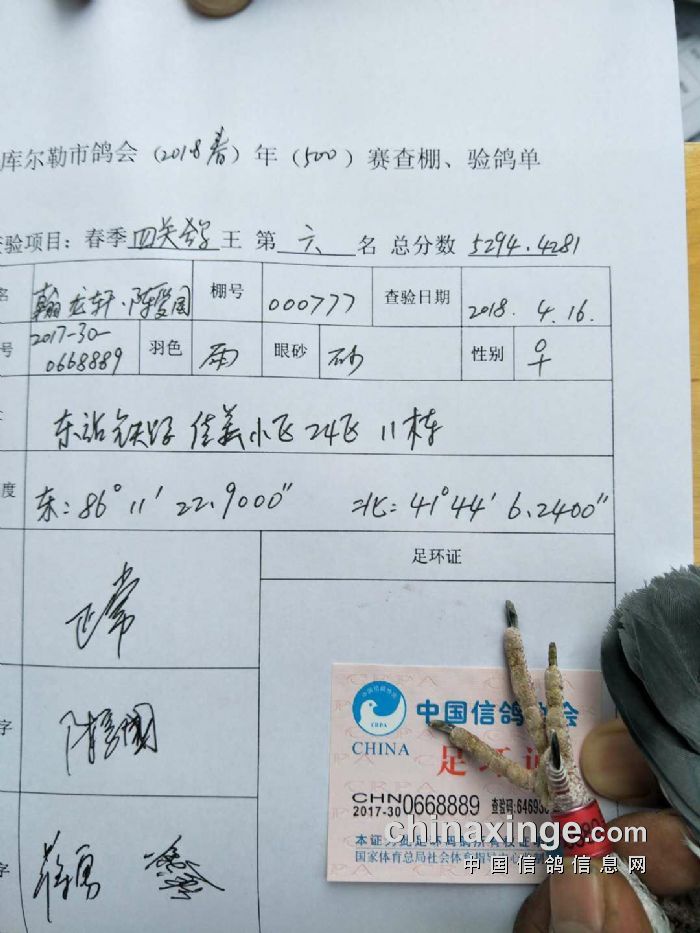 库尔勒市鸽会（2018春）年（500）赛查棚、验鸽单
查验项目：春季四关鸽王 第六名 总分数 5294.4281
名 翰龙轩·陈爱国 棚号 000777 查验日期 2018.4.16.
号 2017-30-0668889 羽色 雨 眼砂 砂 性别 ♀
东站铁路佳美小区24区11栋
度 东：86°11′22.9000″ 北：41°44′6.2400″
足环证
正常
字
字
中国信鸽协会
CRPA
CHINA
足环证
CHN
2017-30
0668889 查验码:64693
本证为此足环
国家体育总局社会体育指导中心
chinaxinge.com
中国信鸽信息网